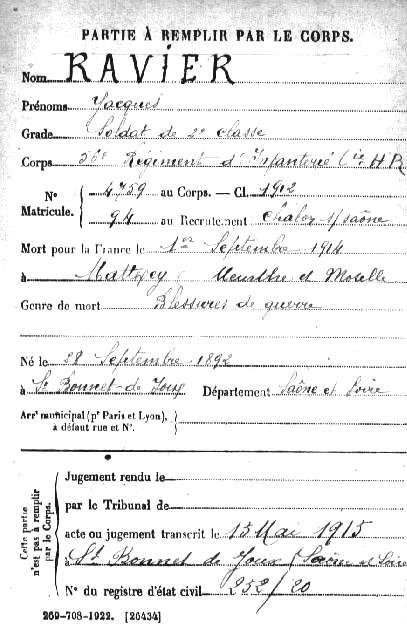 PARTIE À REMPLIR PAR LE CORPS.
Nom RAVIER
Prénoms Jacques
Grade Soldat de 2e classe
Corps 56e Régiment d'Infanterie (
N° Matricule.
4759 au Corps. — Cl. 1912
94 au Recrutement Chalon s/ Saône
Mort pour la France le 1er Septembre 1914
à Mattexey Meurthe et Moselle
Genre de mort Blessures de guerre
Né le 28 Septembre 1892
à St Bonnet-de Joux Département Saône et Loire
Arrt municipal (pr Paris et Lyon),
à défaut rue et N°.
Cette partie n'est pas à remplir par le Corps.
Jugement rendu le
par le Tribunal de
acte ou jugement transcrit le 15 Mai 1915
à St Bonnet de Joux (Saône et Loire
N° du registre d'état civil 252/20
269-708-1922. [26434]